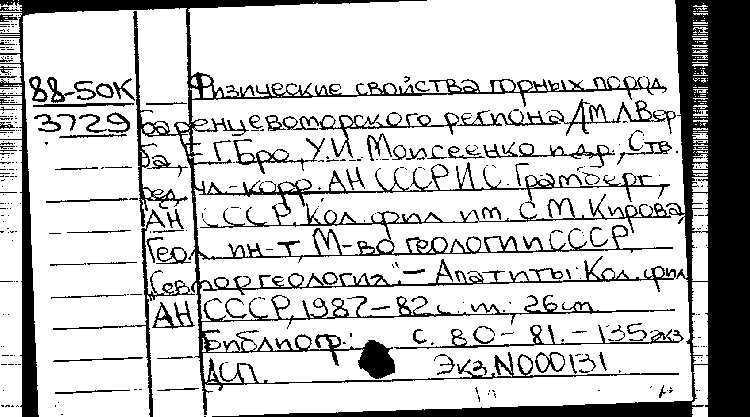 88-50К Физические свойства горных пород
3729 баренцевоморского региона /М.Л.Вер-
ба, Е.Г.Бро, У.И. Моисеенко и др., Отв.
ред. чл.-корр. АН СССР И.С. Грамберг,
АН СССР. Кол. фил. им. С.М. Кирова,
Геол. ин-т, М-во геологии СССР,
"Севморгеология". – Апатиты: Кол. фил.
АН СССР, 1987 – 82 с. ; 26 см
Библиогр.: с. 80 – 81. – 135 экз.
ДСП. Экз. N000131.